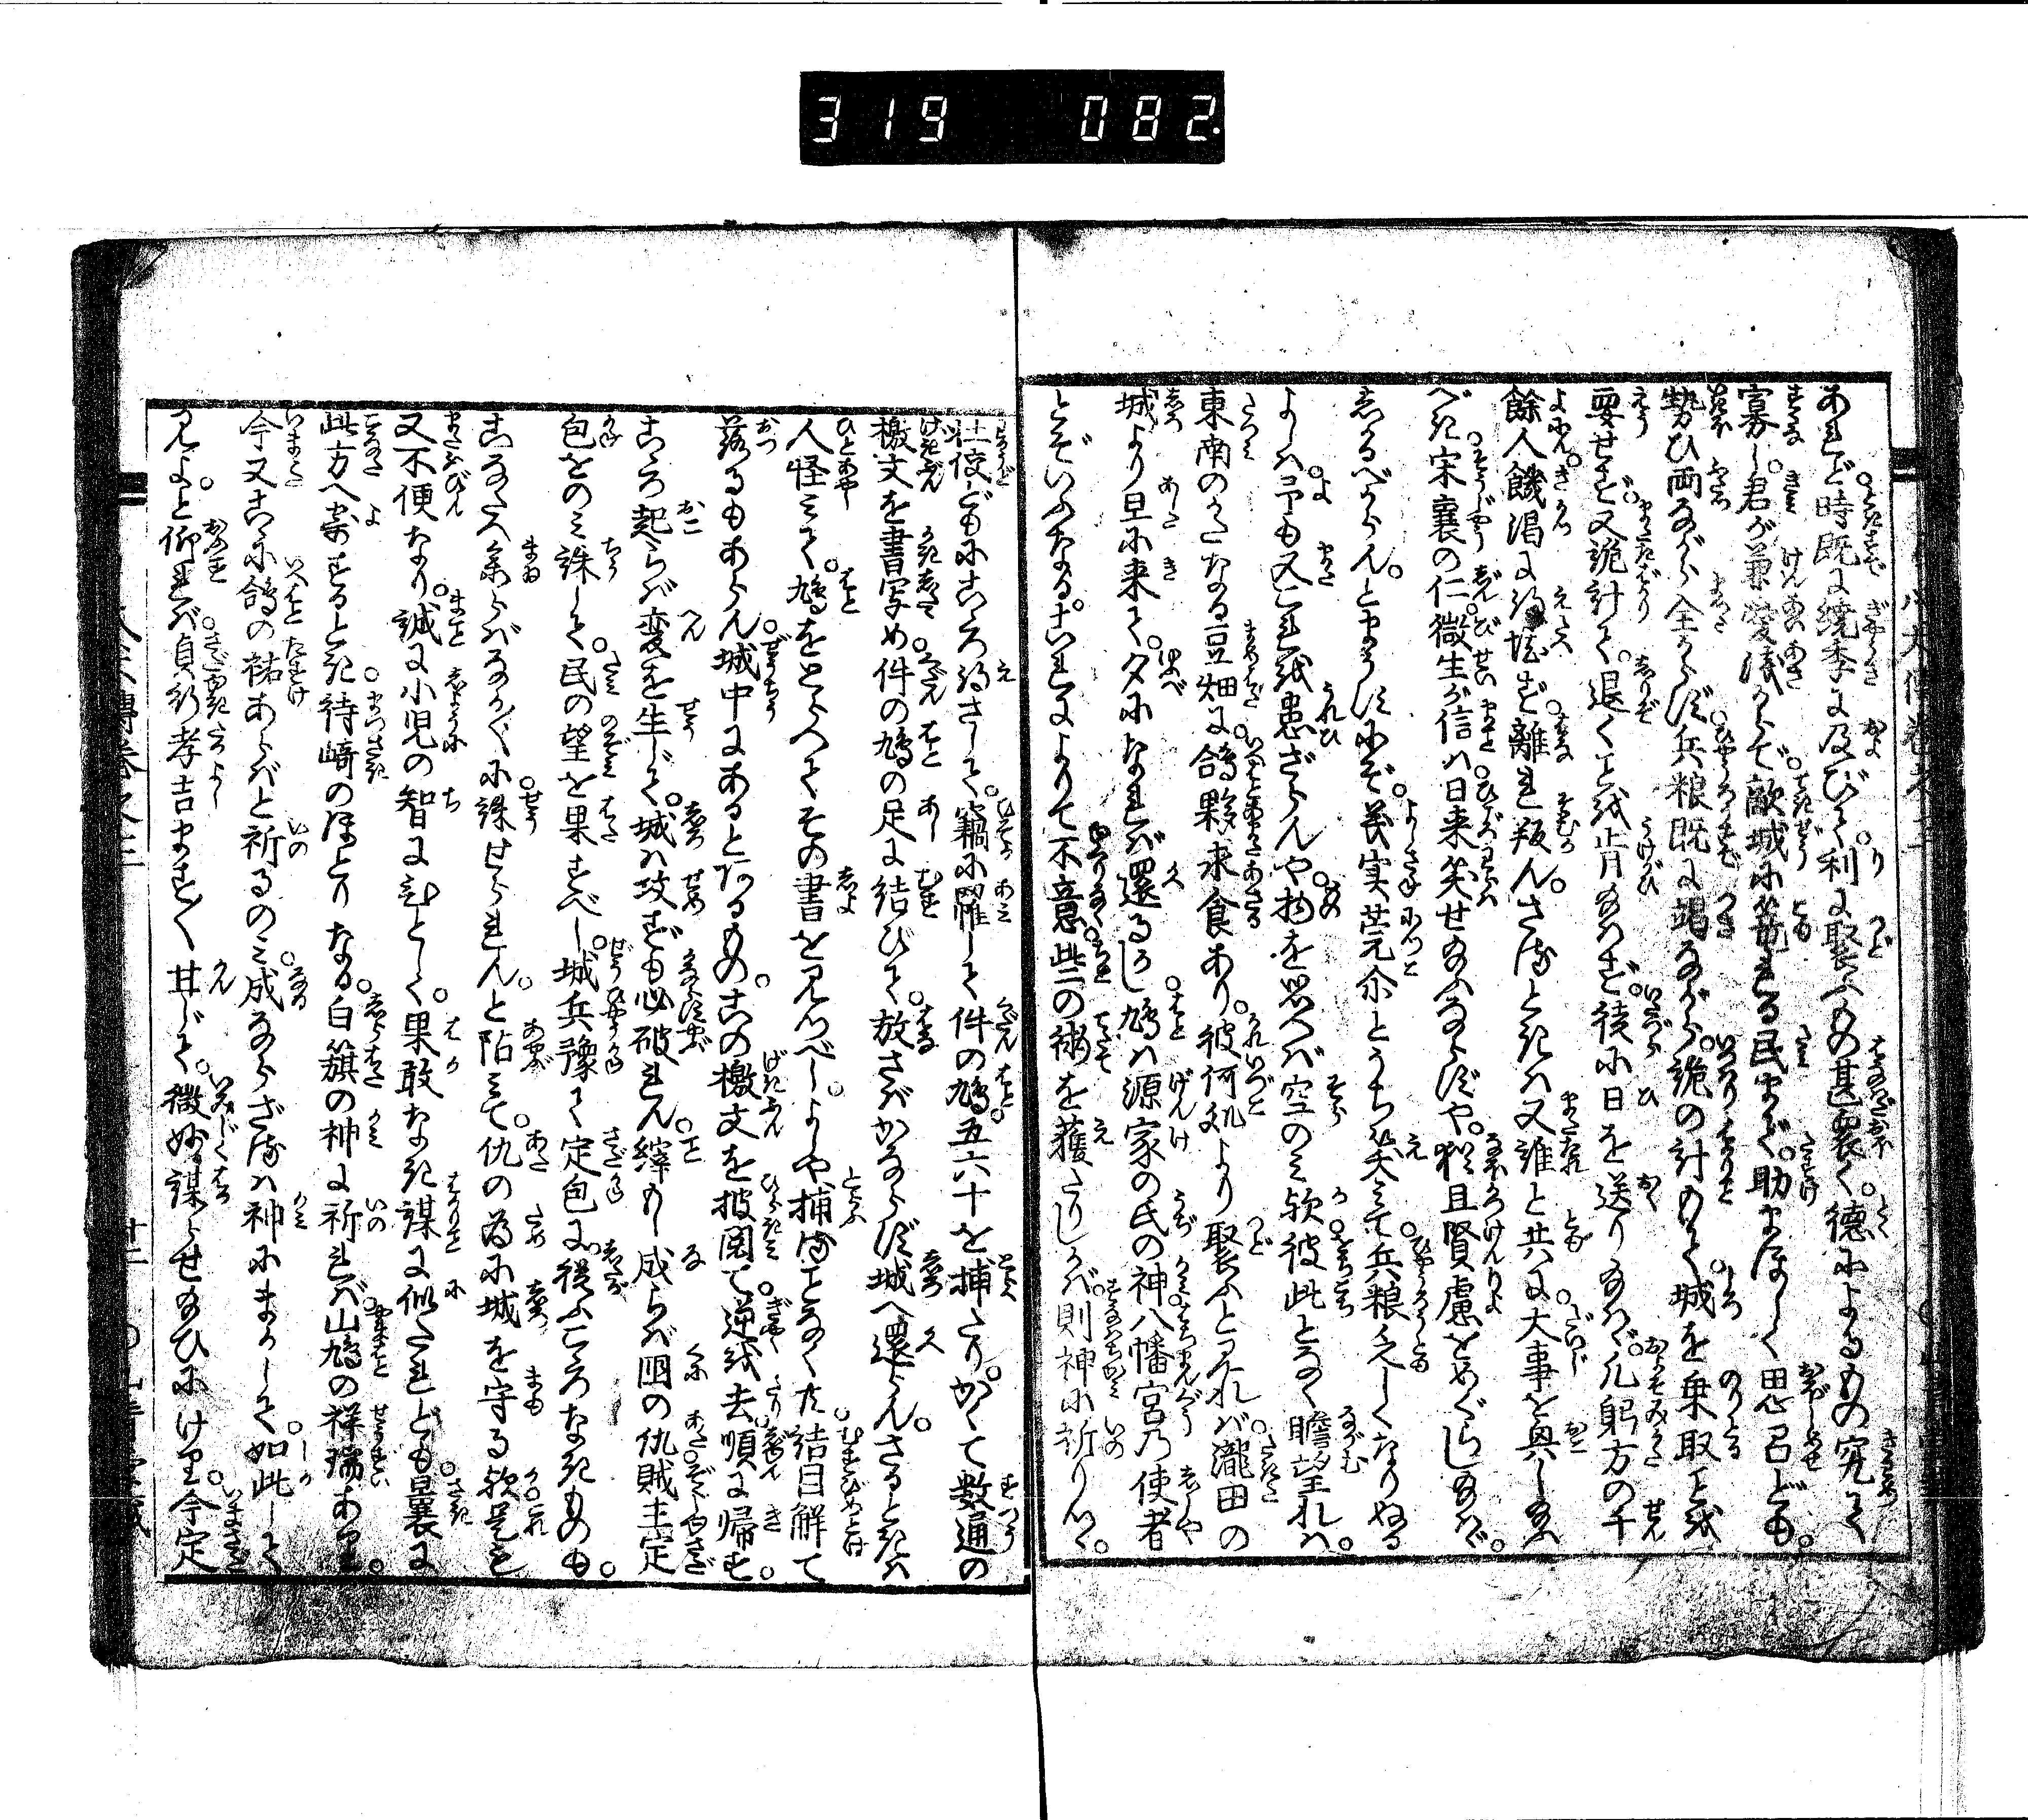 319 082.
あれど。時既に澆季に及びて。利に聚ふもの甚衆く。徳によるもの究て
寡し。君が兼愛浅からで。敵城に篭れる民まで。助まほしく思召ども。
勢ひ両ながら全からず。兵粮既に竭ながら。詭の計もて。城を乗取ことを
要せず。又詭計て。退くことを肯給はず。徒に日を送り給はゞ。凡躬方の千
餘人。饑渇に得堪ず。離れ叛ん。さるときは又誰と共に。大事を興し給ふ
べき。宋襄の仁。微生が信は。日来笑せ給ふならずや。猶且賢慮をめぐらし給はゞ。
しるべからん。とまうすにぞ。義実莞尓とうち笑て。兵粮乏しくなりぬる
よしは。予も又これを患ざらんや。物を思へば空のみ歟。彼此となく瞻望れば。
東南のかたなる豆畑に。鴿夥求食あり。彼何処より聚ふとみれば。瀧田の
城より旦に来て。夕になれば還るめり。鳩は源家の氏の神。八幡宮の使者
とぞいふなる。これによりて不意。些の術を獲たりしかば。則神に祈りつゝ。
壮佼どもにこゝろ得さして。竊に羅して件の鳩。五六十を捕たり。かくて数通の
檄文を書写め。件の鳩の足に結びて。放さばかならず城へ還らん。さるときは
人怪みて。鳩をとらへてその書を見つべし。よしや捕ることなくな。結目解て
落るもあらん。城中にあるとあるもの。この檄文を披閲て。逆を去。順に帰す。
こゝろ起らば変を生じて。城は攻ずも必破れん。縡もし成らば国の仇。賊主定
包をのみ誅して。民の望を果すべし。城兵豫て定包に。従ふこゝろなきものも。
こなたへ参らばながくに。誅せられん。と阽みて。仇の為に城を守る歟。是も
又不便なり。誠に小児の智にひとしく。果敢なき謀に似たれども。曩に
此方へ寄するとき。待崎のほとりなる。白籏の神に祈れば。山鳩の祥瑞あり。
今又こゝに鴿の祐あらばと祈るのみ。成ならざるは神にまかして。如此して
見よ。と仰すれば。貞行孝吉ます〳〵甘じて。微妙謀らせ給ひにけり。今定